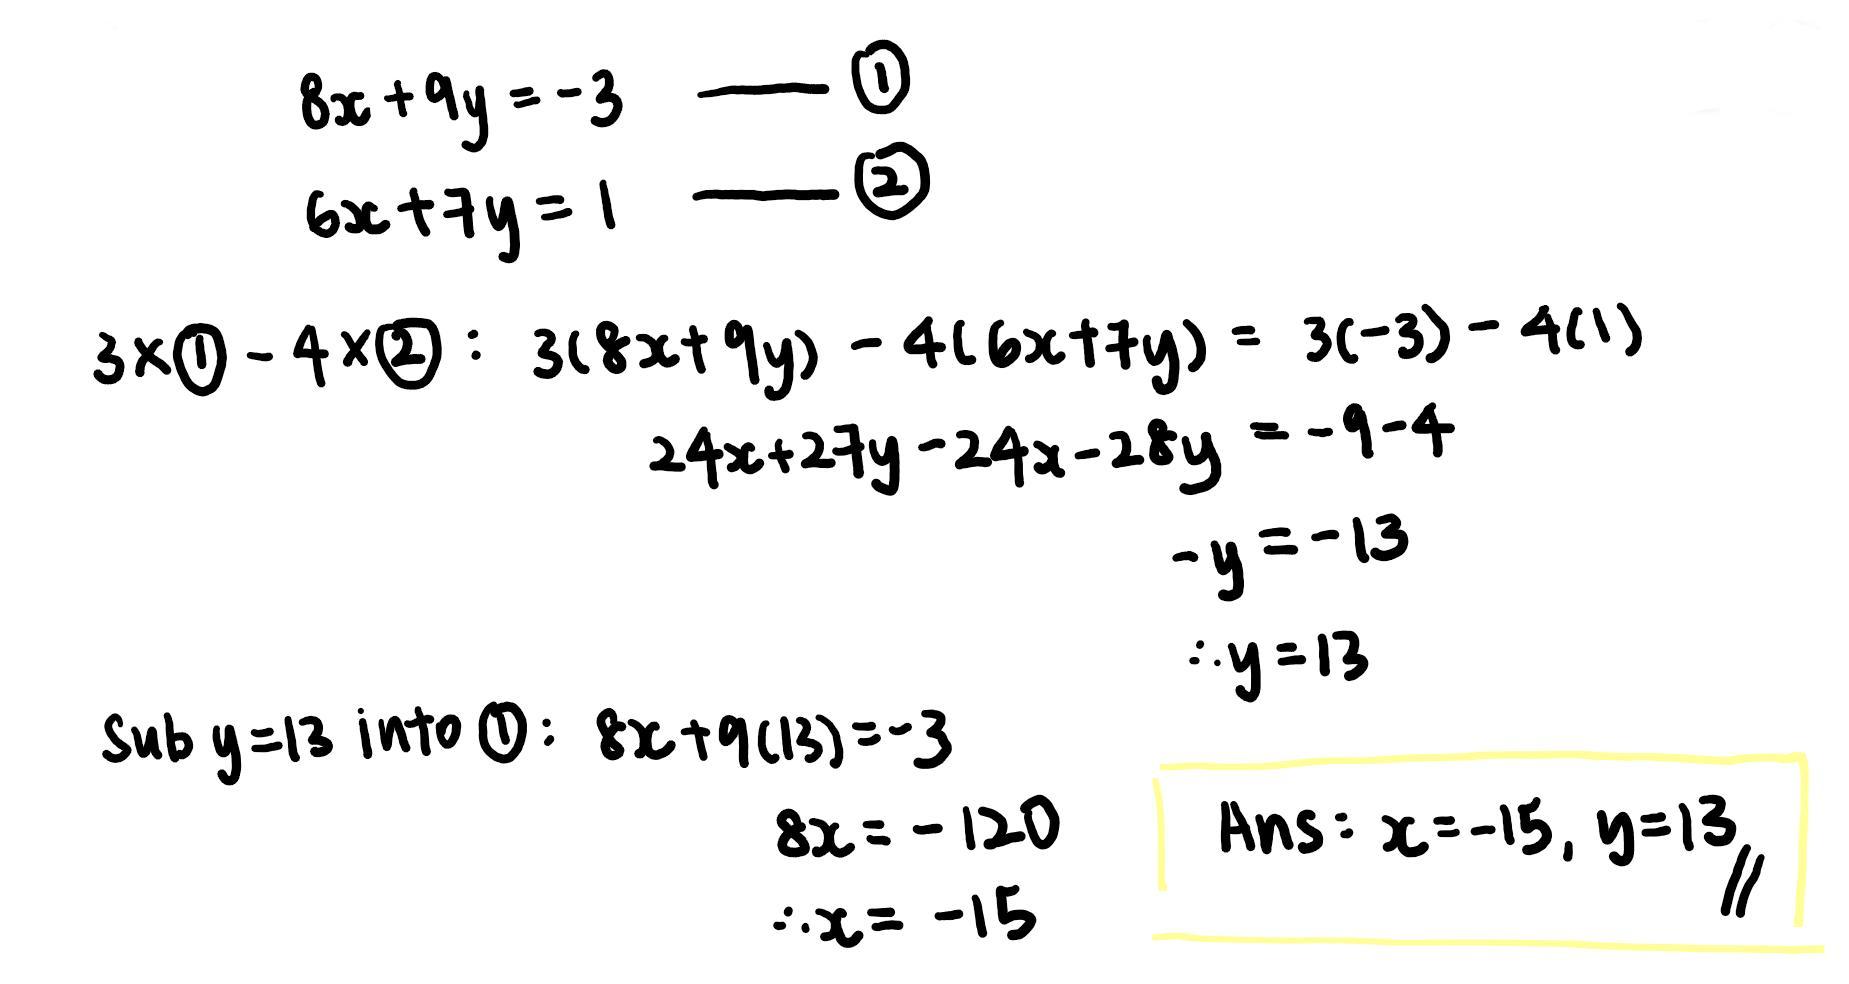 8x+9y=-3 —— ①
6x+7y=1 —— ②
3×①-4×②: 3(8x+9y) - 4(6x+7y) = 3(-3) - 4(1)
24x+27y-24x-28y = -9-4
-y=-13
∴y=13
Sub y=13 into ①: 8x+9(13)=-3
8x=-120
∴x=-15
Ans: x=-15, y=13//